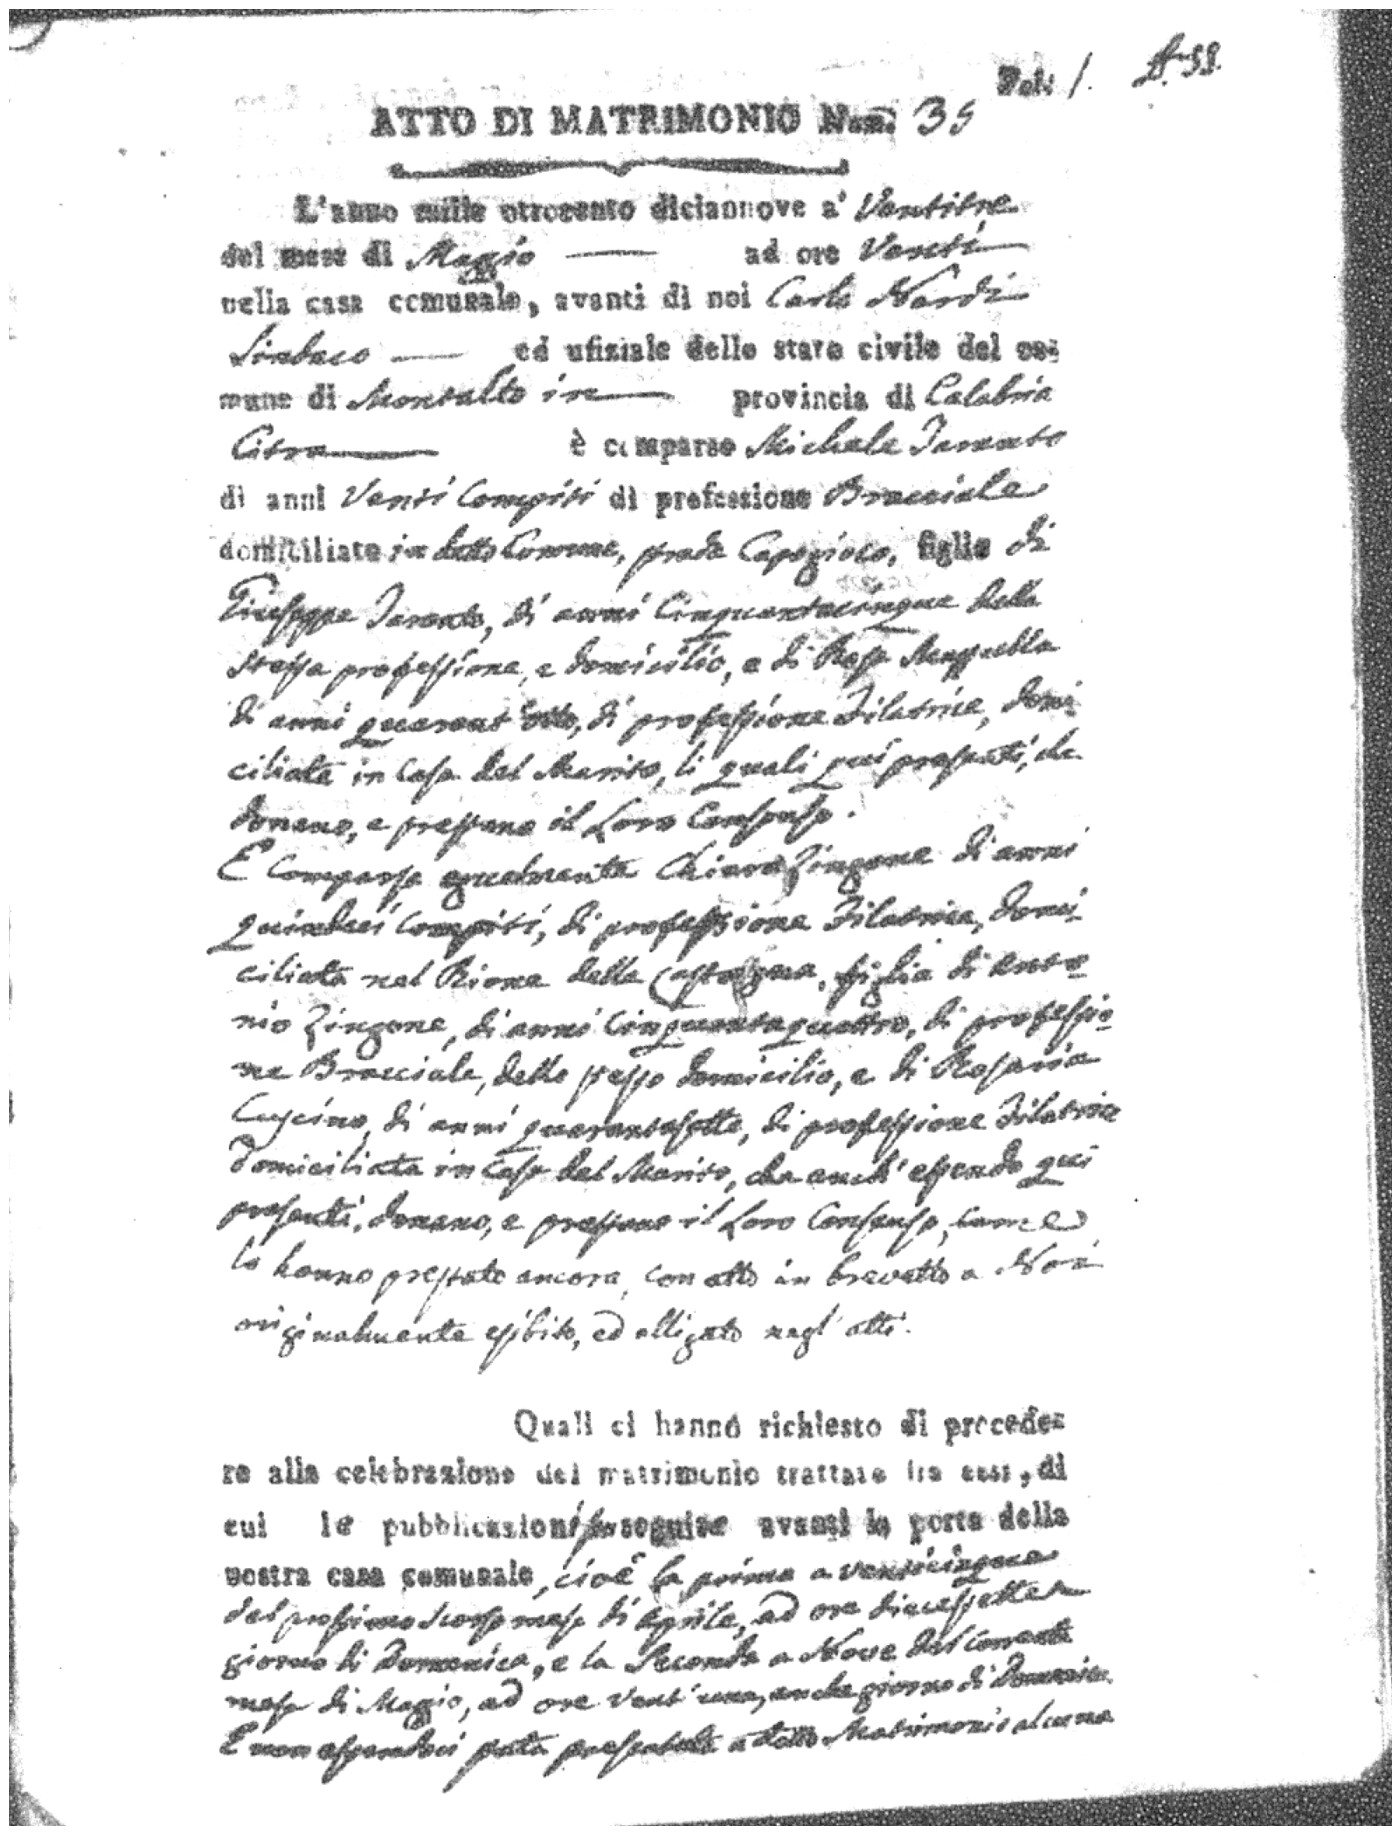 Fol: 1.
ATTO DI MATRIMONIO Num. 35
L'anno mille ottocento diciannove a' Ventitre
del mese di Maggio — ad ore Venti
nella casa comunale, avanti di noi Carlo Nardi
Sindaco — ed ufiziale dello stato civile del co-
mune di Montalto in — provincia di Calabria
Citra — è comparso Michele Taranto
di anni Venti Compiti di professione Bracciale
domiciliato in detto Comune, strada Capogioco, figlio di
Giuseppe Taranto, di anni Cinquantacinque della
stessa professione, e domicilio, e di Rosa
di anni quarant'otto, di professione Filatrice, domi-
ciliata in Casa del Marito, li quali quì presenti, do
donano, e prestano il Loro Consenso.
E Comparsa egualmente Chiara Zingone di anni
quindeci Compiti, di professione Filatrice, domi-
ciliata nel Rione della Castagna, figlia di Anto-
nio Zingone, di anni Cinquantaquattro, di professio-
ne Bracciale, dello stesso domicilio, e di Rosaria
Cuscino, di anni quarantasette, di professione Filatrice
domiciliata in Casa del Marito, che anch'essendo qui
presenti, donano, e prestano il Loro Consenso, come
lo hanno prestato ancora, con atto in brevetto a Noi
originalmente esibito, ed alligato negl'atti.
Quali ci hanno richiesto di procede-
re alla celebrazione del matrimonio trattato fra essi, di
cui le pubblicazioni seguite avanti la porta della
nostra casa comunale, cioè la prima a venticinque
del prossimo scorso mese di Aprile, ad ore diecessette
giorno di Domenica, e la Seconda a Nove del Corrente
mese di Maggio, ad ore Vent'una, anche giorno di Domenica.
E non essendoci stata presentata a detto Matrimonio alcuna